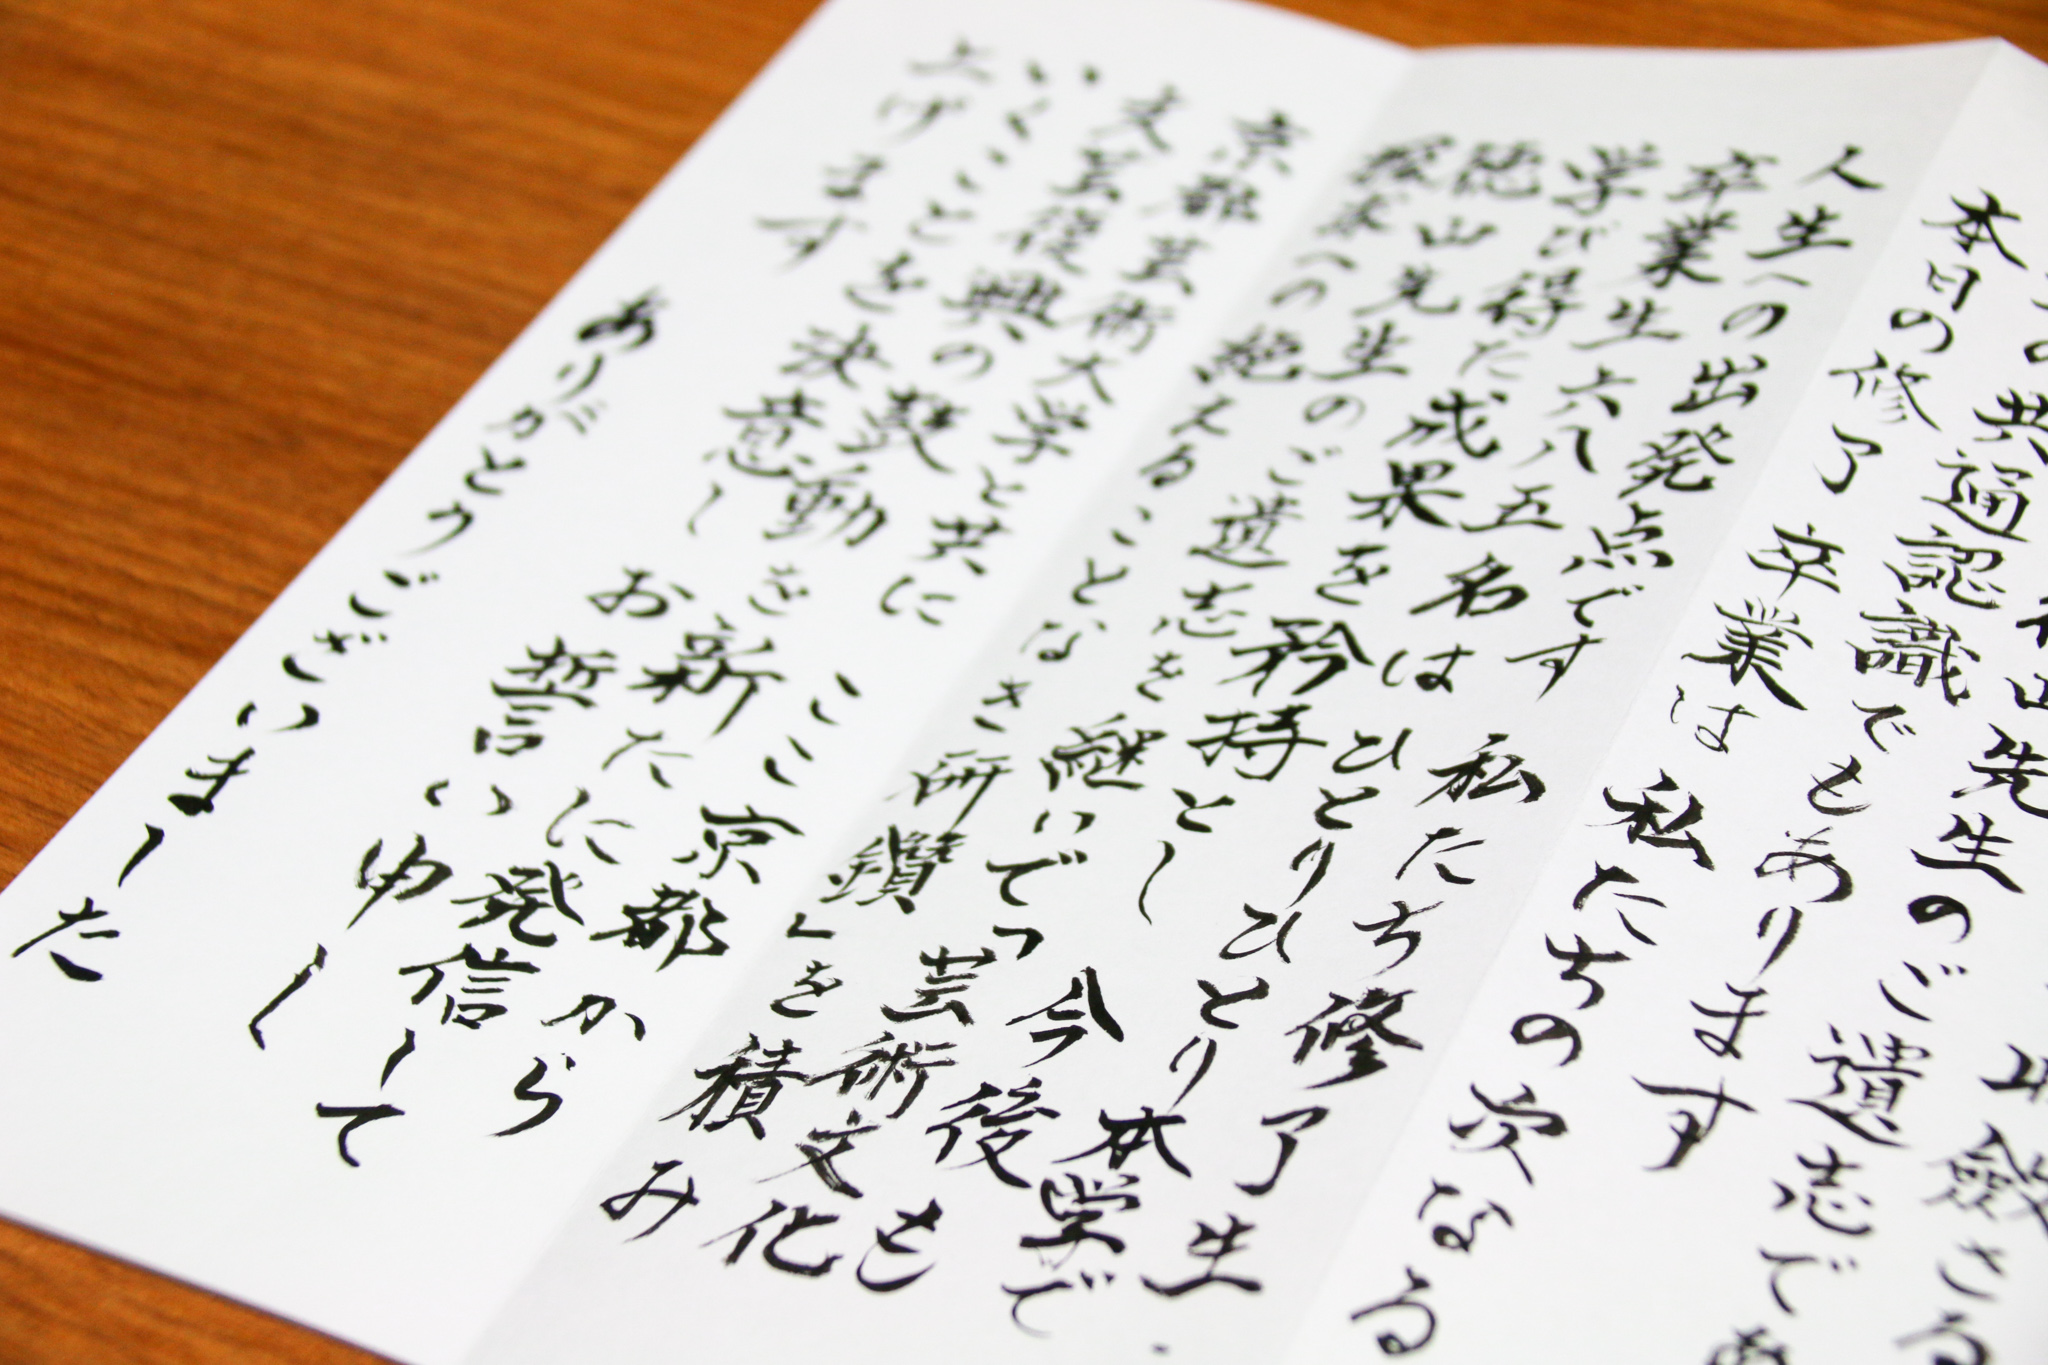 収斂さる
先生のご遺志であ
の共通認識でもあります
本日の修了 卒業は 私たちの次なる
人生への出発点です 私たち修了生
卒業生六八五名は ひとりひとり本学で
学び得た成果を矜持とし 今後も
徳山先生のご遺志を継いで「芸術文化
探求への絶えることなき研鑽」を積み
京都芸術大学と共に ここ京都から
文芸復興の鼓動を新たに発信して
いくことを決意し お誓い申し
上げます
ありがとうございました